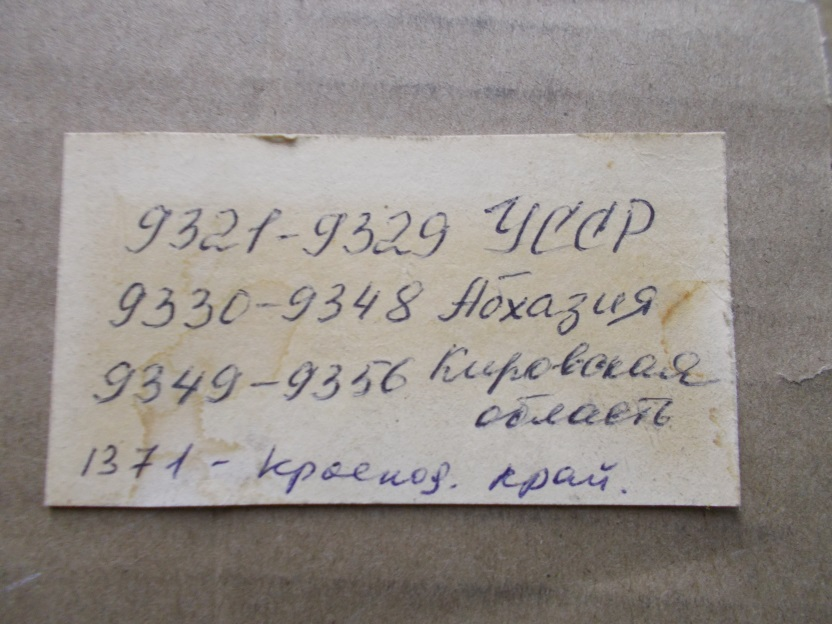 9321-9329 УССР
9330-9348 Абхазия
9349-9356 Кировская
область
1371- Краснод. край.